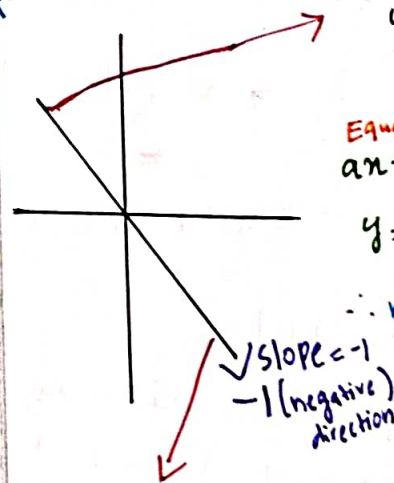 Equ
ax
y =
∴
slope = -1
-1 (negative)
direction